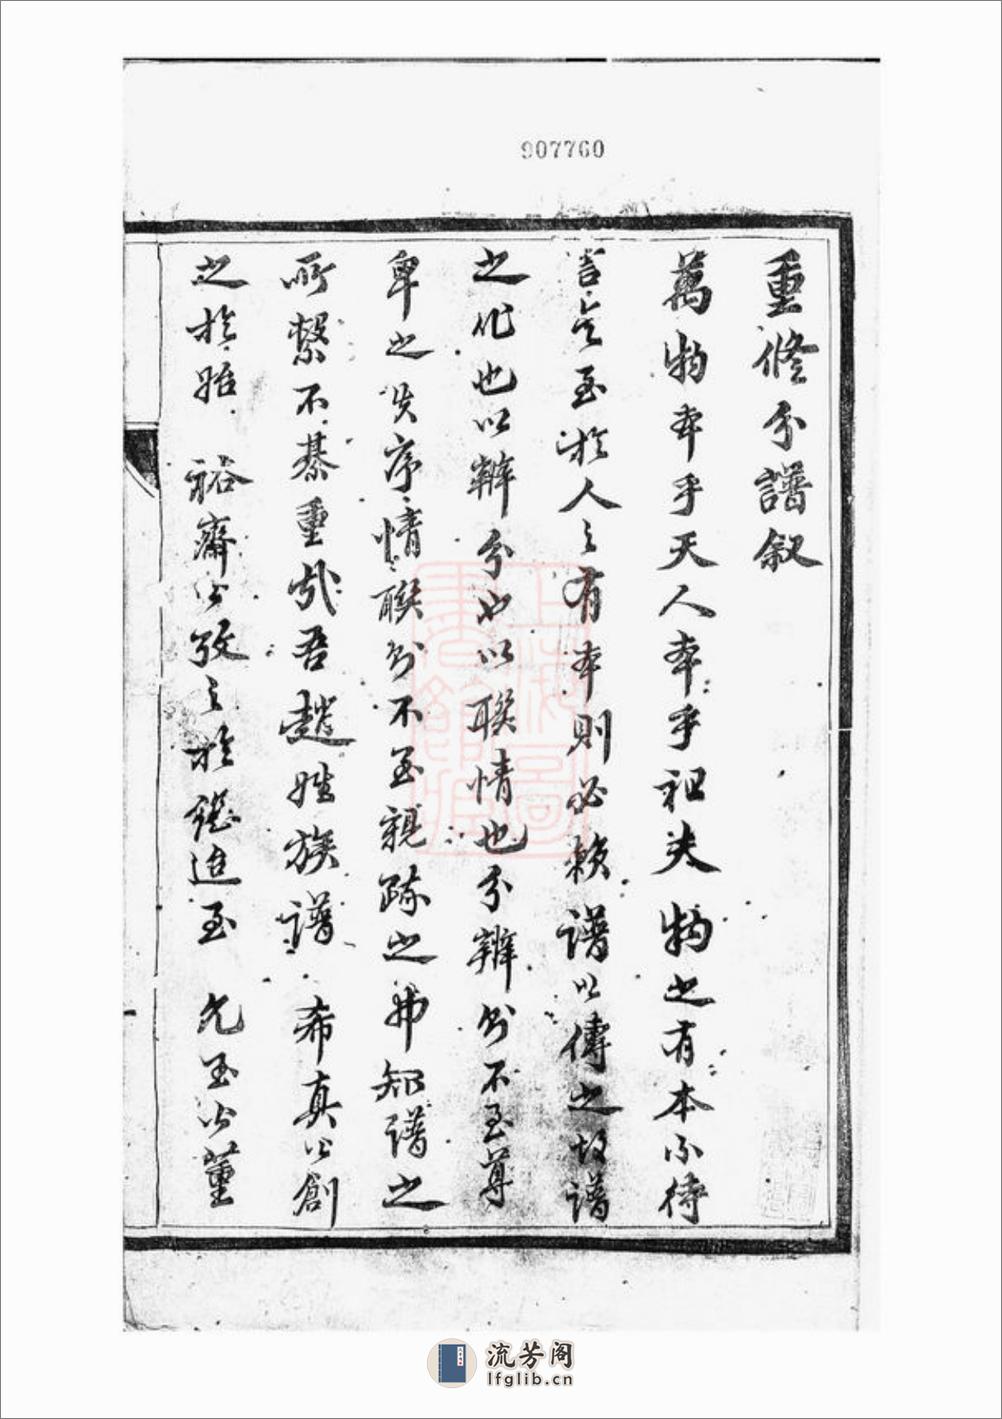 907760
重修分譜叙
萬物本乎天人本乎祖夫物之有本不待
言矣至於人之有本則必賴譜以傳之故譜
之作也以辨分也以聯情也分辨則不至尊
卑之失序情聯則不至親疏之弗知譜之
所繫不綦重哉吾趙姓族譜希真公創
之於始裕齋公攷之於繼迨至允玉公董
上海圖書館藏
流芳阁
lfglib.cn